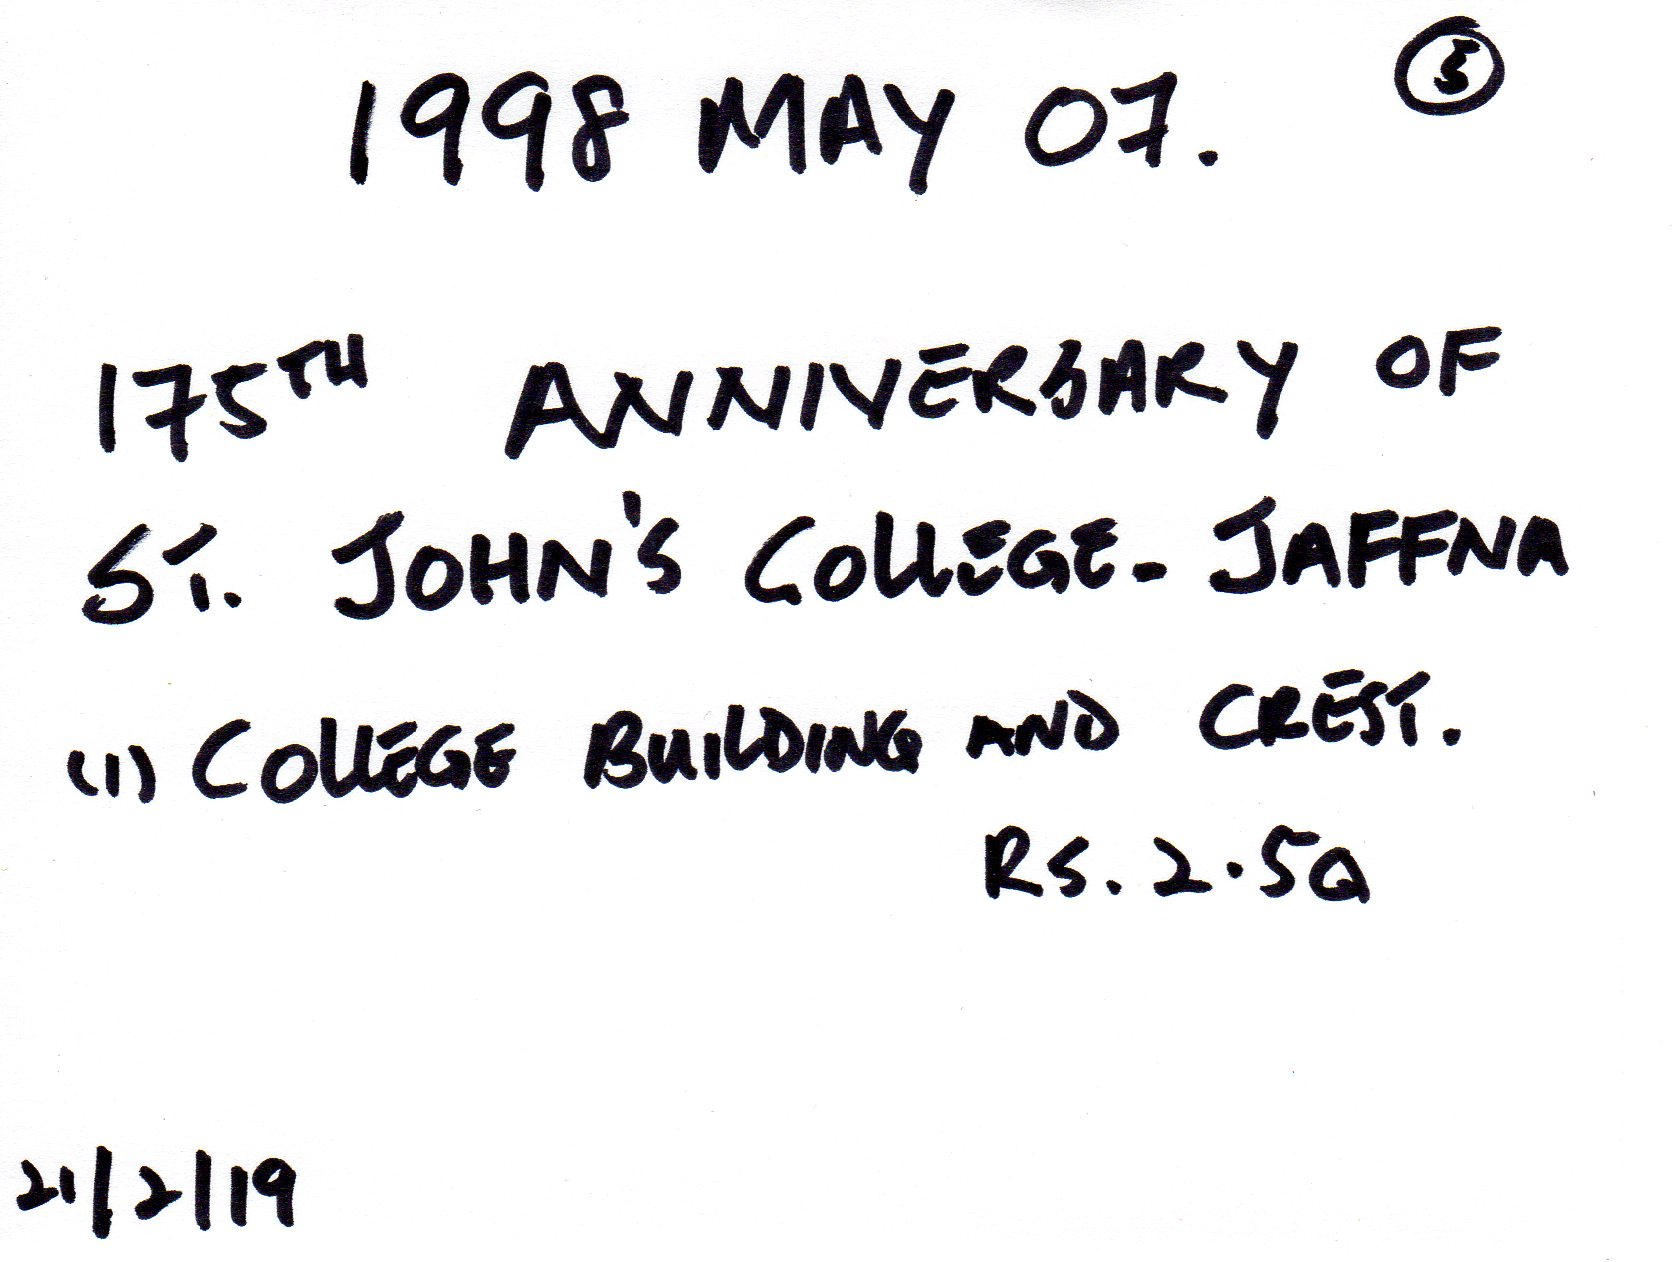 5
1998 MAY 07.
175TH ANNIVERSARY OF
ST. JOHN'S COLLEGE - JAFFNA
(1) COLLEGE BUILDING AND CREST.
RS. 2.50
21/2/19